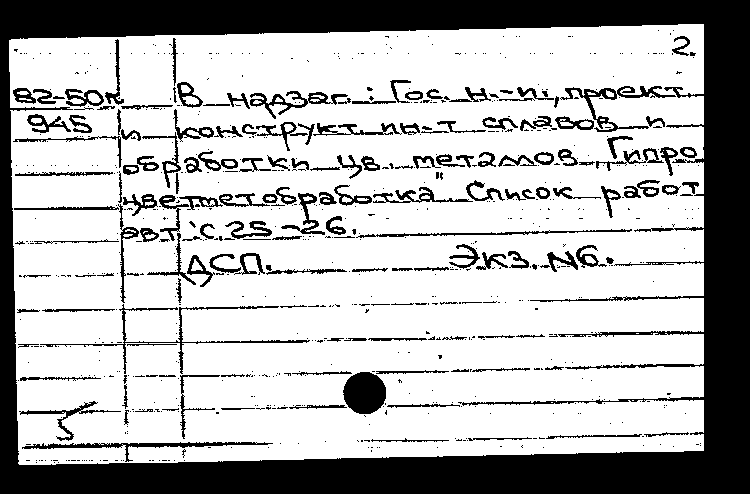 2.
82-50к В надзаг.: Гос. н.-и., проект.
945 и конструкт. ин-т сплавов и
обработки цв. металлов „Гипро
цветметобработка" Список работ
авт.: С. 25-26.
ДСП. Экз. N6.
5